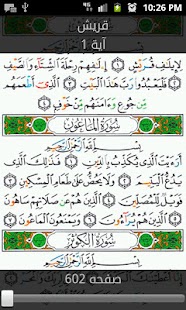 10:26 PM
قريش
آية 1
لِإِيلَٰفِ قُرَيْشٍ ١ إِۦلَٰفِهِمْ رِحْلَةَ ٱلشِّتَآءِ وَٱلصَّيْفِ
٢ فَلْيَعْبُدُوا۟ رَبَّ هَٰذَا ٱلْبَيْتِ ٣ ٱلَّذِىٓ أَطْعَمَهُم
مِّن جُوعٍ وَءَامَنَهُم مِّنْ خَوْفٍۭ ٤
سُورَةُ ٱلْمَاعُونِ
بِسْمِ ٱللَّهِ ٱلرَّحْمَٰنِ ٱلرَّحِيمِ
أَرَءَيْتَ ٱلَّذِى يُكَذِّبُ بِٱلدِّينِ ١ فَذَٰلِكَ ٱلَّذِى
يَدُعُّ ٱلْيَتِيمَ ٢ وَلَا يَحُضُّ عَلَىٰ طَعَامِ ٱلْمِسْكِينِ
٣ فَوَيْلٌ لِّلْمُصَلِّينَ ٤ ٱلَّذِينَ هُمْ عَن صَلَاتِهِمْ سَاهُونَ
٥ ٱلَّذِينَ هُمْ يُرَآءُونَ ٦ وَيَمْنَعُونَ ٱلْمَاعُونَ ٧
سُورَةُ ٱلْكَوْثَرِ
بِسْمِ ٱللَّهِ ٱلرَّحْمَٰنِ ٱلرَّحِيمِ
صفحه 602